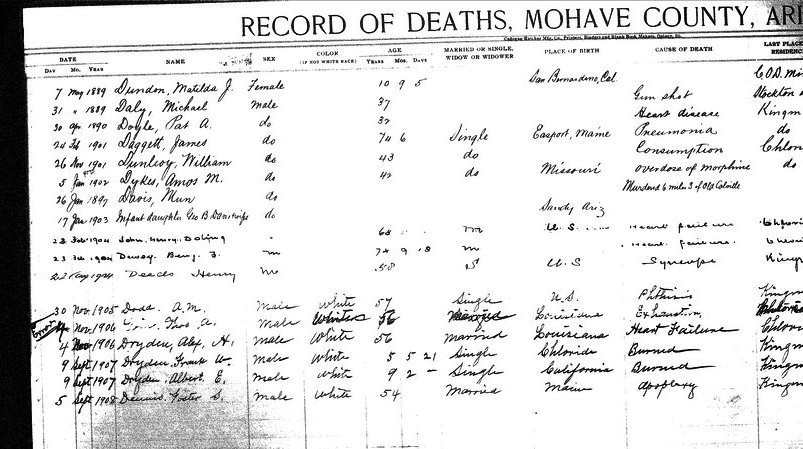 RECORD OF DEATHS, MOHAVE COUNTY, ARI
DATE NAME SEX COLOR (IF NOT WHITE RACE) AGE MARRIED OR SINGLE, WIDOW OR WIDOWER PLACE OF BIRTH CAUSE OF DEATH LAST PLACE RESIDENCE
DAY MO. YEAR YEARS MOS. DAYS
7 May 1889 Dundon, Matilda J. Female 10 9 5 San Bernardino, Cal C.O.D. mi
31 " 1889 Daly, Michael Male 37 Gun shot Stockton
30 Apr 1890 Doyle, Pat A. do 32 Heart disease Kingm
24 Feb 1901 Daggett, James do 74 6 Single Easport, Maine Pneumonia do
26 Nov 1901 Dunlevy, William do 43 do Consumption Chlor
5 Jan 1902 Dykes, Amos M. do 42 do Missouri overdose of morphine do
26 Jan 1897 Davis, Mun do Murdered 6 miles S of Old
17 Jan 1903 Infant daughter Geo B do Sandy Ariz
23 Feb 1904 John Henry Doling 68 m U.S. Heart failure
23 Feb 1904 Dewey Benj. F. m 74 9 18 m Heart failure
Aug 1904 Deeds Henry m 58 S U.S Syncope King
30 Nov. 1905 Dodd A.M. Male White 57 Single U.S. Phthisis Kingm
Nov. 1906 Thos. A. Male White 56 Married Louisiana Exhaustion
4 Nov. 1906 Dryden, Alex, H. male White 56 married Louisiana Heart Failure Chlori
9 Sept 1907 Dryden, Frank W. male White 5 5 21 Single Chloride Burned Kingm
9 Sept 1907 Dryden Albert E. male White 9 2 – Single California Burned Kingm
5 Sept 1908 Dennis, Foster S. male White 54 Married Maine apoplexy Kingm